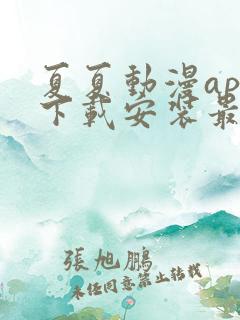 夏夏動漫ap
下載安裝最
張旭鵬
未经同意禁止转载